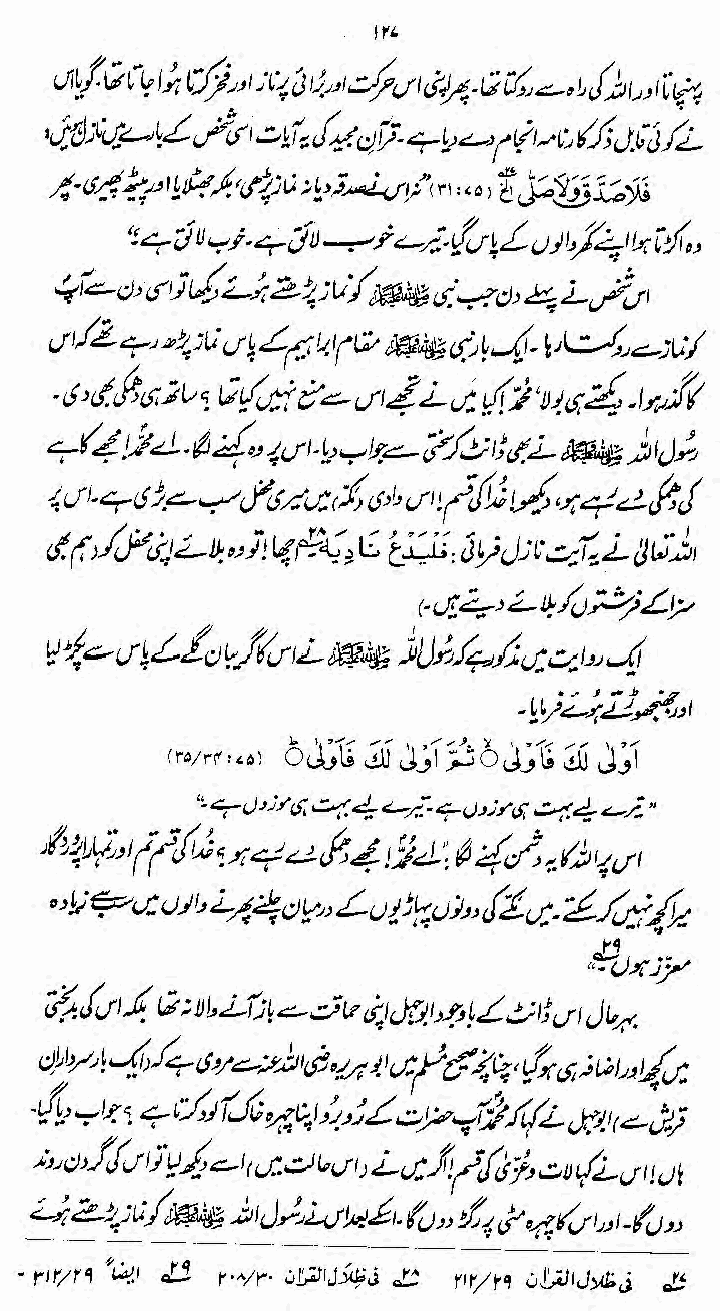 ۱۲۷
پہنچاتا اور اللہ کی راہ سے روکتا تھا۔ پھر اپنی اس حرکت اور برائی پر ناز اور فخر کرتا ہوا جاتا تھا۔ گویا اس
نے کوئی قابل ذکر کارنامہ انجام دے دیا ہے۔ قرآن مجید کی یہ آیات اسی شخص کے بارے میں نازل ہوئیں؛
فَلَا صَدَّقَ وَلَا صَلّٰی الخ ۲۷ (۳۱:۷۵) ”نہ اس نے صدقہ دیا نہ نماز پڑھی، بلکہ جھٹلایا اور پیٹھ پھیری۔ پھر
وہ اکڑتا ہوا اپنے گھر والوں کے پاس گیا۔ تیرے خوب لائق ہے۔ خوب لائق ہے؛“
اس شخص نے پہلے دن جب نبی ﷺ کو نماز پڑھتے ہوئے دیکھا تو اسی دن سے آپؐ
کو نماز سے روکتا رہا۔ ایک بار نبی ﷺ مقام ابراہیم کے پاس نماز پڑھ رہے تھے کہ اس
کا گذر ہوا۔ دیکھتے ہی بولا، محمدؐ! کیا میں نے تجھے اس سے منع نہیں کیا تھا؟ ساتھ ہی دھمکی بھی دی۔
رسول اللہ ﷺ نے بھی ڈانٹ کر سختی سے جواب دیا۔ اس پر وہ کہنے لگا۔ اے محمدؐ! مجھے کاہے
کی دھمکی دے رہے ہو، دیکھو! خدا کی قسم! اس وادی (مکہ) میں میری محفل سب سے بڑی ہے۔ اس پر
اللہ تعالیٰ نے یہ آیت نازل فرمائی: فَلْیَدْعُ نَادِیَہٗ ۲۸ اچھا! تو وہ بلائے اپنی محفل کو (ہم بھی
سزا کے فرشتوں کو بلائے دیتے ہیں۔)
ایک روایت میں مذکور ہے کہ رسول اللہ ﷺ نے اس کا گریبان گلے کے پاس سے پکڑ لیا
اور جھنجھوڑتے ہوئے فرمایا۔
اَوْلٰی لَکَ فَاَوْلٰی ۝ ثُمَّ اَوْلٰی لَکَ فَاَوْلٰی ۝ (۳۵/۳۴:۷۵)
”تیرے لیے بہت ہی موزوں ہے۔ تیرے لیے بہت ہی موزوں ہے۔“
اس پر اللہ کا یہ دشمن کہنے لگا: ”اے محمدؐ! مجھے دھمکی دے رہے ہو؟ خدا کی قسم تم اور تمہارا پروردگار
میرا کچھ نہیں کر سکتے۔ میں مکّے کی دونوں پہاڑیوں کے درمیان چلنے پھرنے والوں میں سب سے زیادہ
معزّز ہوں ۲۹“
بہرحال اس ڈانٹ کے باوجود ابوجہل اپنی حماقت سے باز آنے والا نہ تھا بلکہ اس کی بدبختی
میں کچھ اور اضافہ ہی ہو گیا، چنانچہ صحیح مسلم میں ابوہریرہ رضی اللہ عنہ سے مروی ہے کہ (ایک بار سرداران
قریش سے) ابوجہل نے کہا کہ محمدؐ آپ حضرات کے رُوبرو اپنا چہرہ خاک آلود کرتا ہے؟ جواب دیا گیا۔
ہاں! اس نے کہا لات و عزّیٰ کی قسم! اگر میں نے (اس حالت میں) اسے دیکھ لیا تو اس کی گردن روند
دوں گا۔ اور اس کا چہرہ مٹی پر رگڑ دوں گا۔ اسکے بعد اس نے رسول اللہ ﷺ کو نماز پڑھتے ہوئے
۲۷ فی ظلال القرآن ۲۱۲/۲۹ ۲۸ فی ظلال القرآن ۲۰۸/۳۰ ۲۹ ایضاً ۳۱۲/۲۹۔